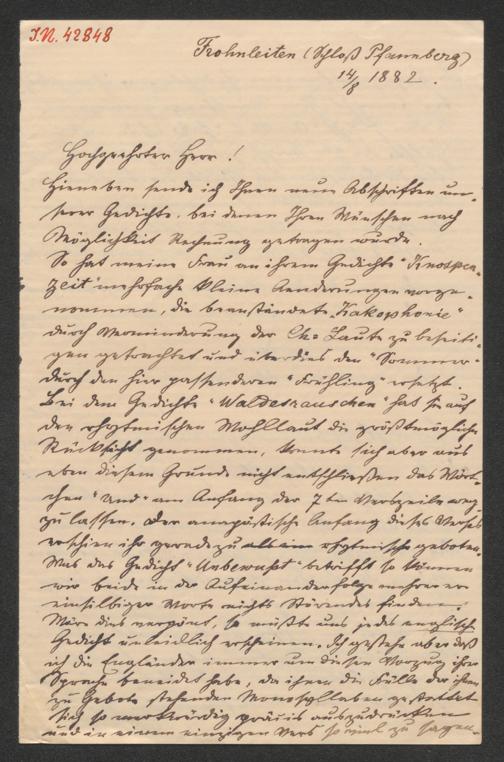 I.N. 42848
Frohnleiten (Schloß Pfannberg)
14/8 1882.
Hochgeehrter Herr!
Hieneben sende ich Ihnen neue Abschriften un-
serer Gedichte, bei denen Ihren Wünschen nach
Möglichkeit Rechnung getragen wurde.
So hat meine Frau an ihrem Gedichte "Knospen-
zeit" mehrfache kleine Aenderungen vorge-
nommen, die beanständete "Kakophonie"
durch Verminderung der Ch= Laute zu beseiti-
gen getrachtet und überdies den "Sommer"
durch den hier passenderen "Frühling" ersetzt.
Bei dem Gedichte "Waldesrauschen" hat sie auf
den rhytmischen Wohllaut die größtmögliche
Rücksicht genommen, konnte sich aber aus
eben diesem Grunde nicht entschließen das Wört-
chen "und" am Anfang der 7ten Verszeile weg-
zulassen. Der anapästische Anfang dieses Verses
erschien ihr geradezu als ein rhytmisches gebote
Was das Gedicht "Unbewußt" betrifft so können
wir beide in der Aufeinanderfolge mehrerer
einsilbiger Worte nichts Störendes finden.
Wäre dies verpönt, so müßte uns jedes englische
Gedicht unleidlich erscheinen. Ich gestehe aber daß
ich die Engländer immer um diesen Vorzug ihrer
Sprache beneidet habe, da ihnen die Fülle der ihnen
zu Gebote stehenden Monosyllaben gestattet
sich so merkwürdig präcis auszudrücken
und in einem einzigen Vers so viel zu sagen.